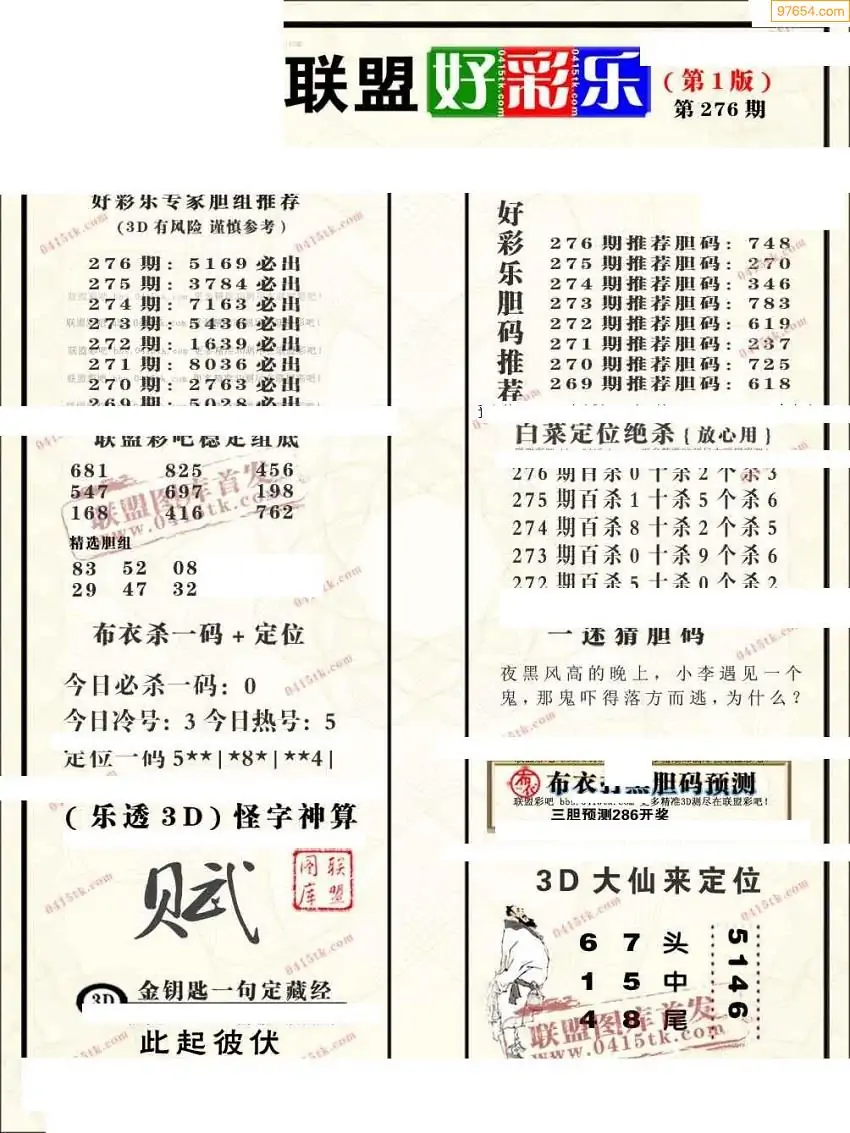 97654.com
联盟好彩乐
(第1版)
第276期
好彩乐专家胆组推荐
(3D有风险 谨慎参考)
276期: 5169必出
275期: 3784必出
274期: 7163必出
273期: 5436必出
272期: 1639必出
271期: 8036必出
270期: 2763必出
269期: 5028必出
联盟彩吧稳定组底
681 825 456
547 697 198
168 416 762
精选胆组
83 52 08
29 47 32
布衣杀一码+定位
今日必杀一码: 0
今日冷号: 3 今日热号: 5
定位一码 5**|*8*|**4|
(乐透3D)怪字神算
赋
联盟图库
3D
金钥匙一句定藏经
此起彼伏
好彩乐胆码推荐
276期推荐胆码: 748
275期推荐胆码: 270
274期推荐胆码: 346
273期推荐胆码: 783
272期推荐胆码: 619
271期推荐胆码: 237
270期推荐胆码: 725
269期推荐胆码: 618
白菜定位绝杀{放心用}
276期百杀0十杀2个杀3
275期百杀1十杀5个杀6
274期百杀8十杀2个杀5
273期百杀0十杀9个杀6
272期百杀5十杀0个杀2
一迷猜胆码
夜黑风高的晚上，小李遇见一个
鬼,那鬼吓得落方而逃,为什么？
布衣
胆码预测
联盟彩吧 bbs.0415tk.com 更多精准3D测尽在联盟彩吧!
三胆预测286开奖
3D大仙来定位
6 7 头
1 5 中
4 8 尾
5146
联盟图库首发
www.0415tk.com